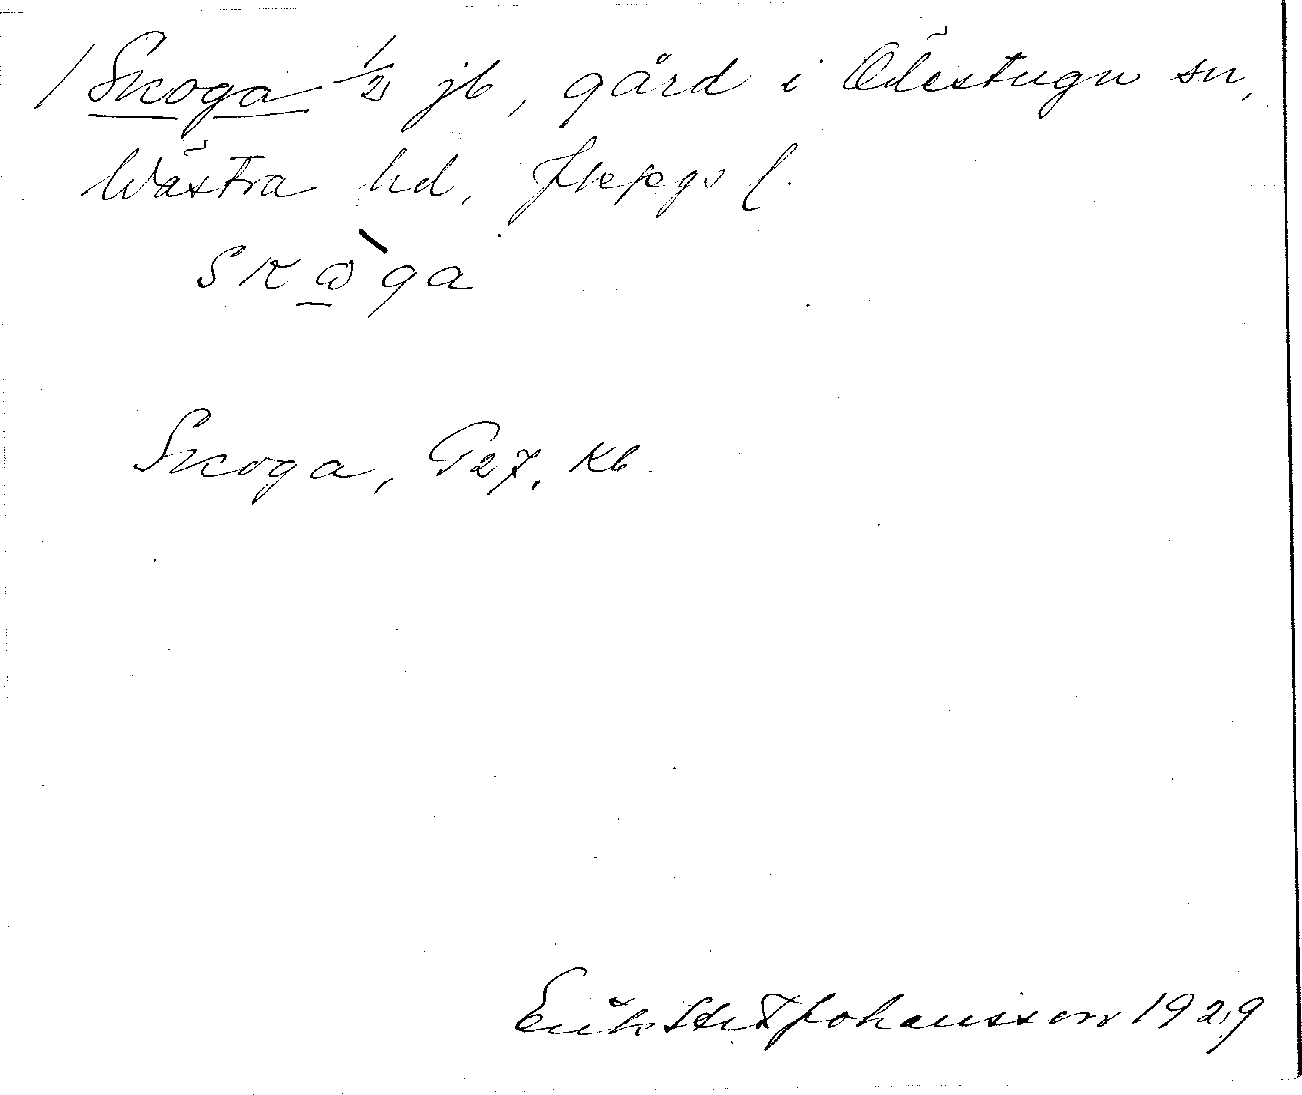 / Skoga 1/2 jb, gård i Ödestugu sn,
Västra hd, Jkpgs l.
skò̱ga
Skoga, G27, Kb.
Erik Johansson 1929